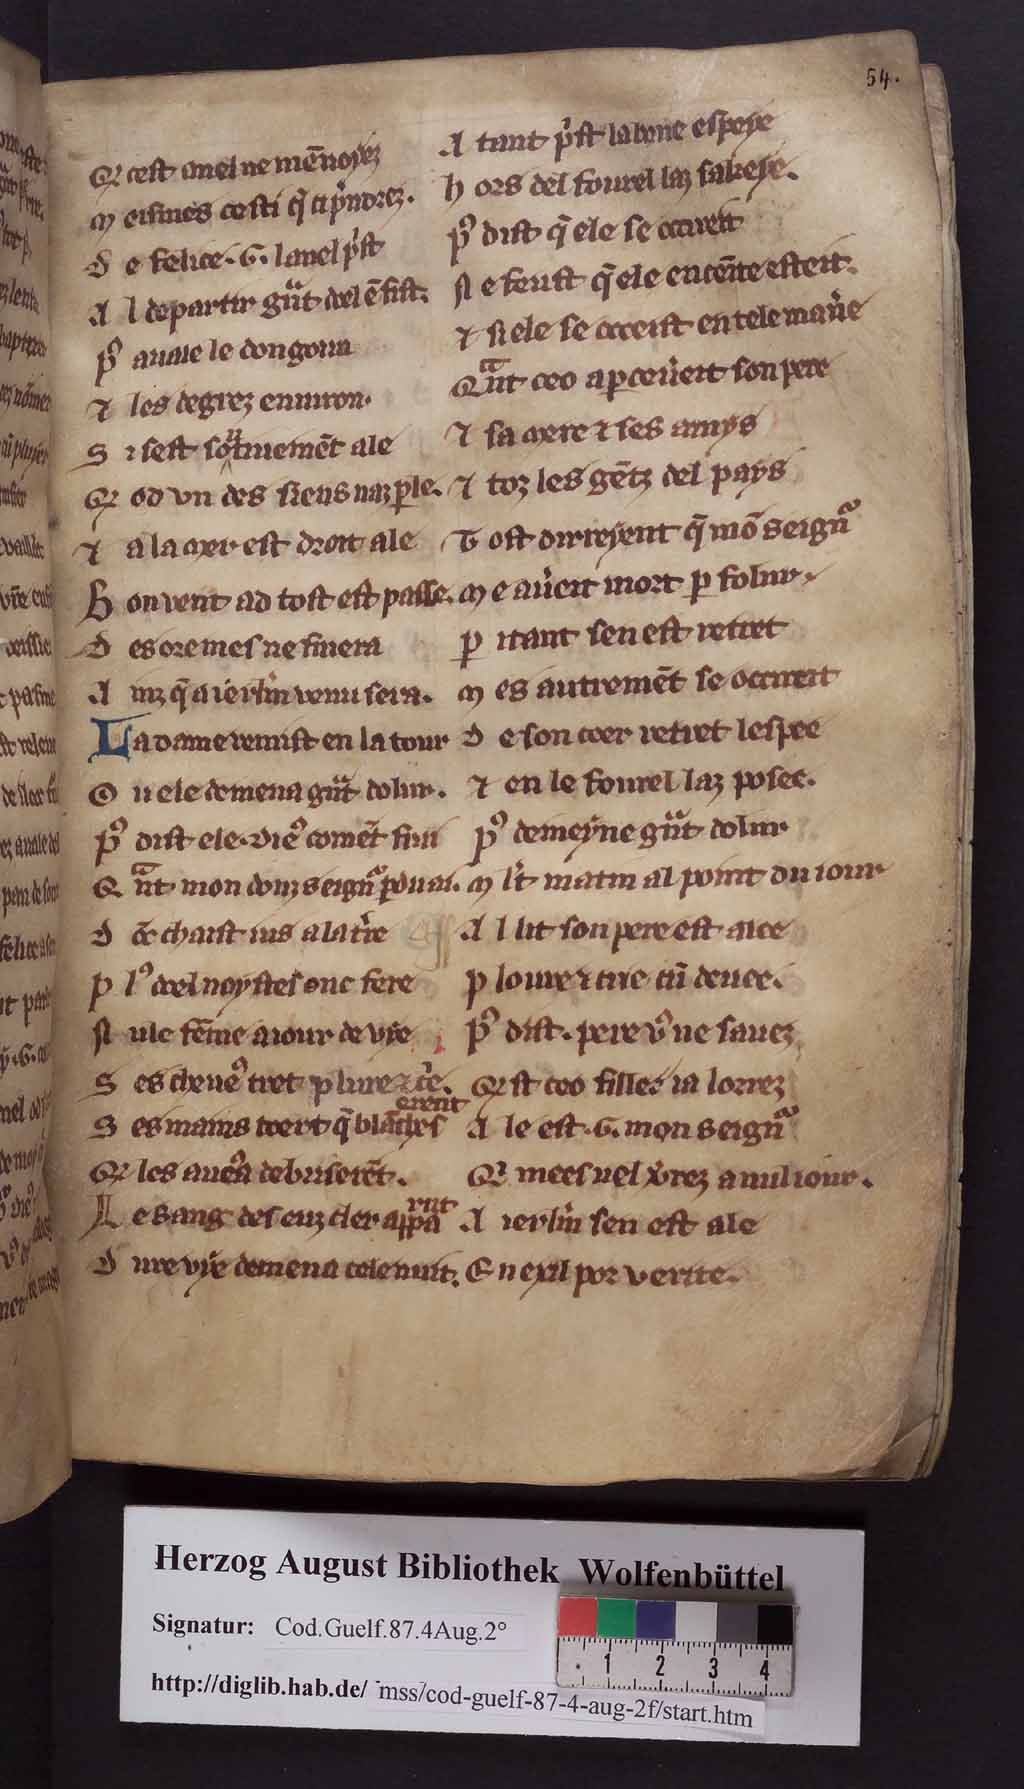 54.
Q cest anel ne mẽuoyez
M eismes cesti q̃ ci p̃ndrez.
D e felice .G. lanel p̃st
A l departir g̃nt doel ẽ fist.
P9 auale le dongoun
⁊ les degrez enuiron.
S i sest so tiuemẽt ale
Q od vn des siens naz ꝑle.
⁊ a la mer est droit ale
B on vent ad tost est passe.
D es ore mes ne finera
A inz q̃ a ierl̃m venu sera.
L a dame remist en la tour
O u ele demena g̃nt dolur.
P9 dist ele. die9 comẽt fui
Q ant mon douz seign̄ ꝑdu ai.
D õc chaist ius a la t̃re
P l9 doel noystes onc fere
N ule fẽme a iour de vye
S es cheue9 tret plure ⁊ c̃e.
S es mains toert q̃ blãches erent
Q les anen debruserẽt.
L e sang des euz cler apparut
D ure vye demena cele nuit.
A tant p̃st la bone espeye
H ors del fourel laz sakeye.
P9 dist q̃ ele se occireit
N e feust q̃ ele encẽte esteit.
⁊ si ele se occeist en tele man̄e
Qant ceo aꝑceũeit son pere
⁊ sa mere ⁊ ses amys
⁊ toz les gẽtz del pays
T ost dirreyent q̃ mõ seign̄
M e aũeit mort ꝑ folur.
P itant sen est retret
M es autremẽt se occireit
D e son coer retret lespee
⁊ en le fourel laz posee.
P9 demeyne g̃nt dolur
M l̃t matin al point du iour
A l lit son pere est alee
P loure ⁊ crie cũ deuee.
P9 dist. pere v9 ne sauez
Q st ceo fille: ia lorrez
A le est .G. mon seign̄
Q mees nel v̄rez a nul iour.
A ierl̃m sen est ale
E n exil por verite.
Herzog August Bibliothek Wolfenbüttel
Signatur: Cod.Guelf.87.4Aug.2°
1 2 3 4
http://diglib.hab.de/ mss/cod-guelf-87-4-aug-2f/start.htm